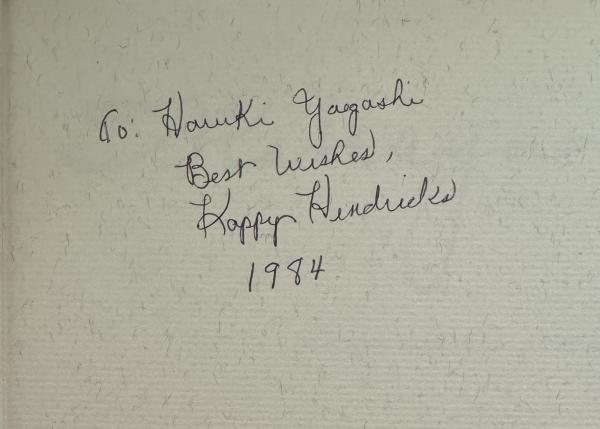 To: Haruki Yagashi
Best Wishes,
Kappy Hendricks
1984